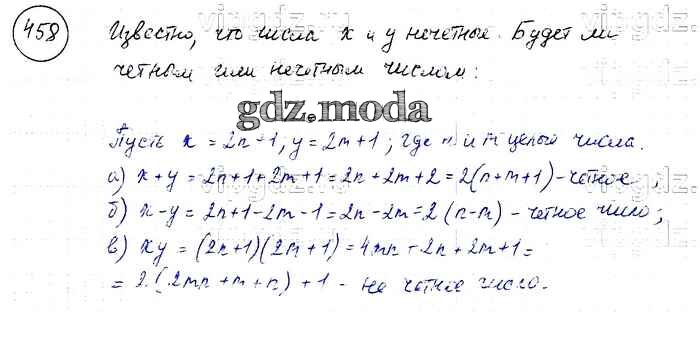 458
Известно, что числа x и y нечетные. Будет ли
четным или нечетным числом:
gdz.moda
Пусть x = 2n+1, y = 2m+1; где n и m целые числа.
а) x+y = 2n+1+2m+1 = 2n+2m+2 = 2(n+m+1) - четное ;
б) x-y = 2n+1-2m-1 = 2n-2m = 2(n-m) - четное число;
в) xy = (2n+1)(2m+1) = 4mn + 2n + 2m+1 =
= 2(2mn+m+n) + 1 - не четное число.